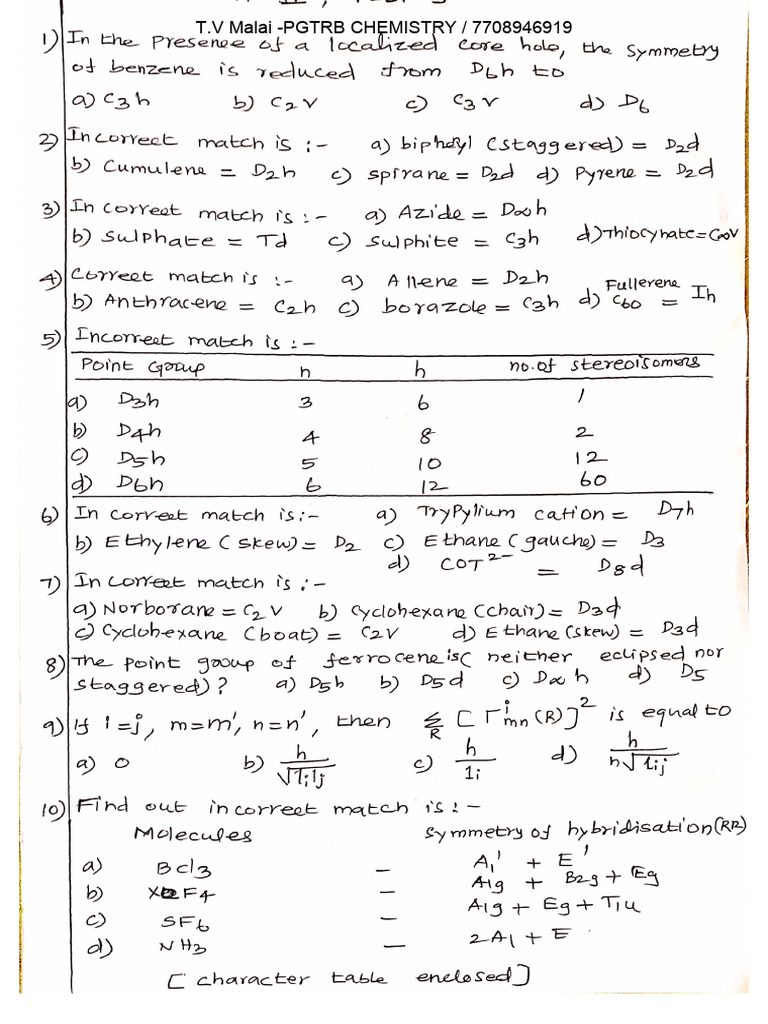 T.V Malai -PGTRB CHEMISTRY / 7708946919
1) In the presence of a localized core hole, the symmetry
of benzene is reduced from D6h to
a) C3h b) C2v c) C3v d) D6
2) Incorrect match is :- a) biphenyl (staggered) = D2d
b) Cumulene = D2h c) spirane = D2d d) Pyrene = D2d
3) In correct match is :- a) Azide = D∞h
b) Sulphate = Td c) sulphite = C3h d) Thiocynate = C∞V
4) Correct match is :- a) Allene = D2h
b) Anthracene = C2h c) borazole = C3h d) Fullerene C60 = Ih
5) Incorreet match is :-
Point Group n h no. of stereoisomers
a) D3h 3 6 1
b) D4h 4 8 2
c) D5h 5 10 12
d) D6h 6 12 60
6) In correct match is:- a) TryPylium cation = D7h
b) Ethylene (skew) = D2 c) Ethane (gauche) = D3
d) COT2- = D8d
7) In correct match is :-
a) Norborane = C2V b) cyclohexane (chair) = D3d
c) Cyclohexane (boat) = C2V d) Ethane (skew) = D3d
8) The point group of ferrocene is ( neither eclipsed nor
staggered) ? a) D5h b) D5d c) D∞h d) D5
9) If i=j, m=m', n=n', then Σ R [Γ i mn (R)]2 is equal to
a) 0 b) h/√lilj c) h/li d) h/n√lij
10) Find out incorrect match is :-
Molecules Symmetry of hybridisation (RR)
a) BCl3 - A1' + E'
b) XeF4 - A1g + B2g + Eg
c) SF6 - A1g + Eg + T1u
d) NH3 - 2A1 + E
[ character table enclosed ]